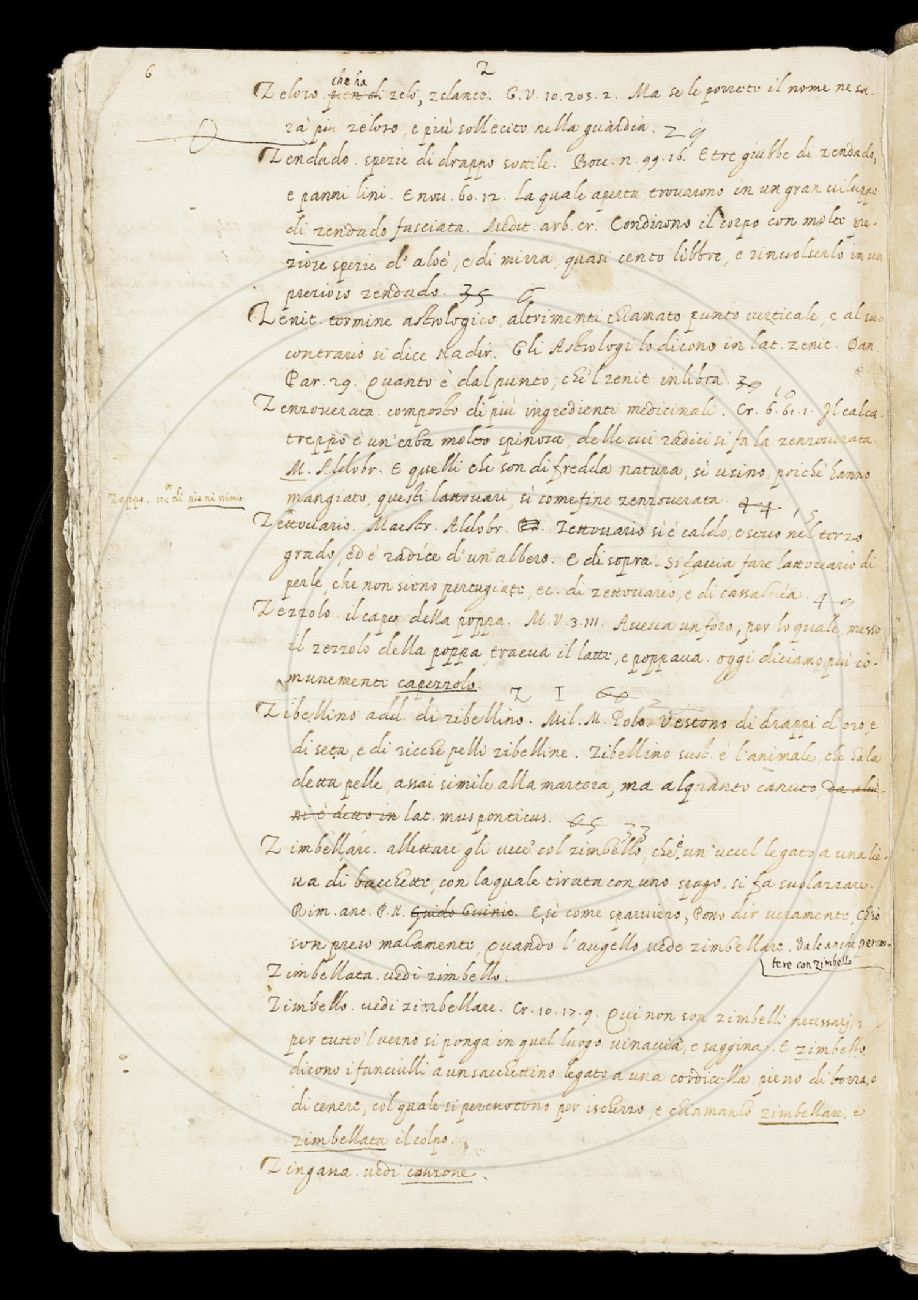 6
2
che ha
Zeloso. pien di zelo, zelante. G. V. 10. 203. 2. Ma se le porreto il nome ne sa-
rà più zeloso, e più sollecito nella guardia. 29
Zendado. spezie di drappo sottile. Bocc. n. 99. 16. E tre giubbe di zendado,
e panni lini. E nou. 60. 12. La quale aperta, trouarono in un gran uiluppo
di zendado fasciata. Medit. arb. cr. Condirono il corpo con molte pre-
ziose spezie d'aloè, e di mirra, quasi cento libbre, e rinuolserlo in un
prezioso zendado. 35 6
Zenit. termine astrologico, altrimenti chiamato punto uerticale, e al suo
contrario si dice Nadir. Gli Astrologi lo dicono in lat. zenit. Dan.
Par. 29. Quanto è dal punto, che'l zenit inlibra. 39
Zenzouerata. composto di più ingredienti medicinali. Cr. 6. 61. 1. Il calca-
treppo è un'erba molto spinosa, delle cui radici si fa la zenzouerata.
M. Aldobr. E quelli che son di fredda natura, sì usino, poichè hanno
mangiato, questi lattouari, sì come fine zenzouerata. 44 15
Zeppo. ue di pieni simo
Zettouario. Maestr. Aldobr. Zettouario si è caldo, e secco nel terzo
grado, ed è radice d'un'albero. E di sopra. Si faccia fare lattouario di
perle, che non sieno pertugiate, ec. di zettouario, e di cassalinea. 49
Zezzolo. il capo della poppa. M. V. 3. 111. Aueua un foro, per lo quale, messo
il zezzolo della poppa, traeua il latte, e poppaua. oggi diciamo più co-
munemente capezzolo.
Z I 60
Zibellino add. di zibellino. Mil. M. Polo. Vestono di drappi d'oro, e
di seta, e di ricche pelli zibelline. Zibellino sust. è l'animale, che hà la
detta pelle, assai simile alla martora, ma alquanto canuto, da alcu-
ni è detto in lat. mus ponticus. 65 33
Zimbellare. allettare gli ucce' col zimbello, che è un'uccel legato a una lie-
ua di bacchette, con la quale tirata con uno spago, si fa suolazzare.
Rim. ant. P. N. Guido Guinic. E, sì come sparuiero, Posso dir ueramente, Ch'io
son preso malamente, Quando l'augello uede zimbellare. Vale anche perco-
tere con zimbello
Zimbellata. uedi zimbello.
Zimbello. uedi zimbellare. Cr. 10. 17. 9. Qui non son zimbelli necessarij,
per tutto'l uerno si ponga in quel luogo uinaccia, e saggina. E zimbello
dicono i fanciulli a un sacchettino legato a una cordicella pieno di borra, o
di cenere, col quale si percuotono per ischerzo, e chiamanlo zimbellare, e
zimbellata il colpo.
Zingana. uedi canzone.